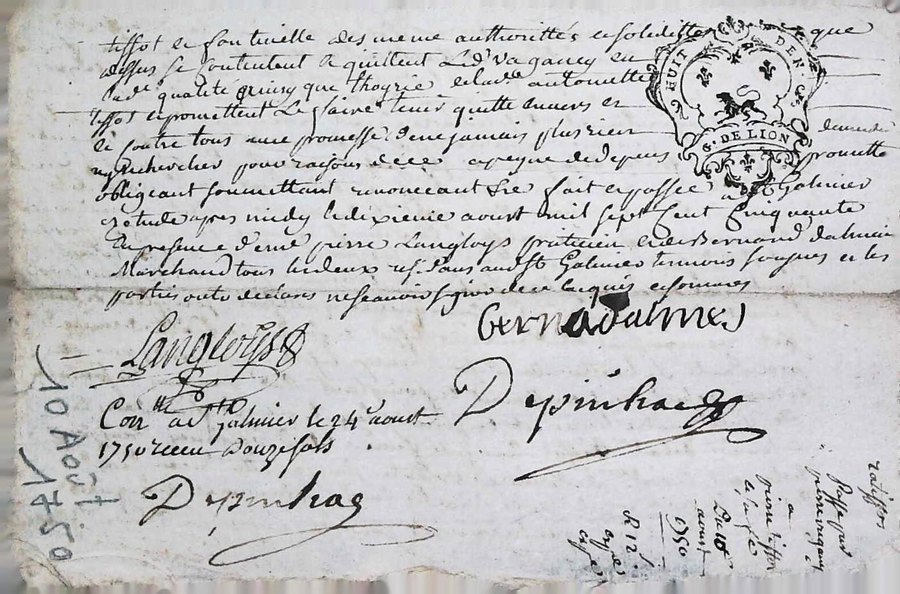 tissot et fontinelle des meme authorittés et solidittes que
dessus se contentent et quittent Led vagancy en
lad. qualite quisy que thoyrie et lad. antoinette
tissot et promettent Le faire tenir quitte envers et
contre tous avec promesse de ne jamais plus rien
ny rechercher pour raison de ce a peyne de depens promette
obligeant soumettant renonceant &c fait et passé a St Galmier
etude apres midy le dixieme aoust mil sept cent cinquante
En presence d'eme pierre Langloys praticien et de Bernard dalmies
Marchand tous les deux resid. aud St Galmier temoins sousignes et les
parties ont declares ne scavoir signer de ce enquis et sommes
HUIT DEN
G. DE LION
Langloys
Bernadalmes
Depinhac
Con.lé a St galmier le 24e aoust
1750 receu douze sols
Depinhac
10 AOÛT
1750
ratiffon
Passé par
pierre vagancy
a
pierre tissot
Du 10
aoust
1750
R 12